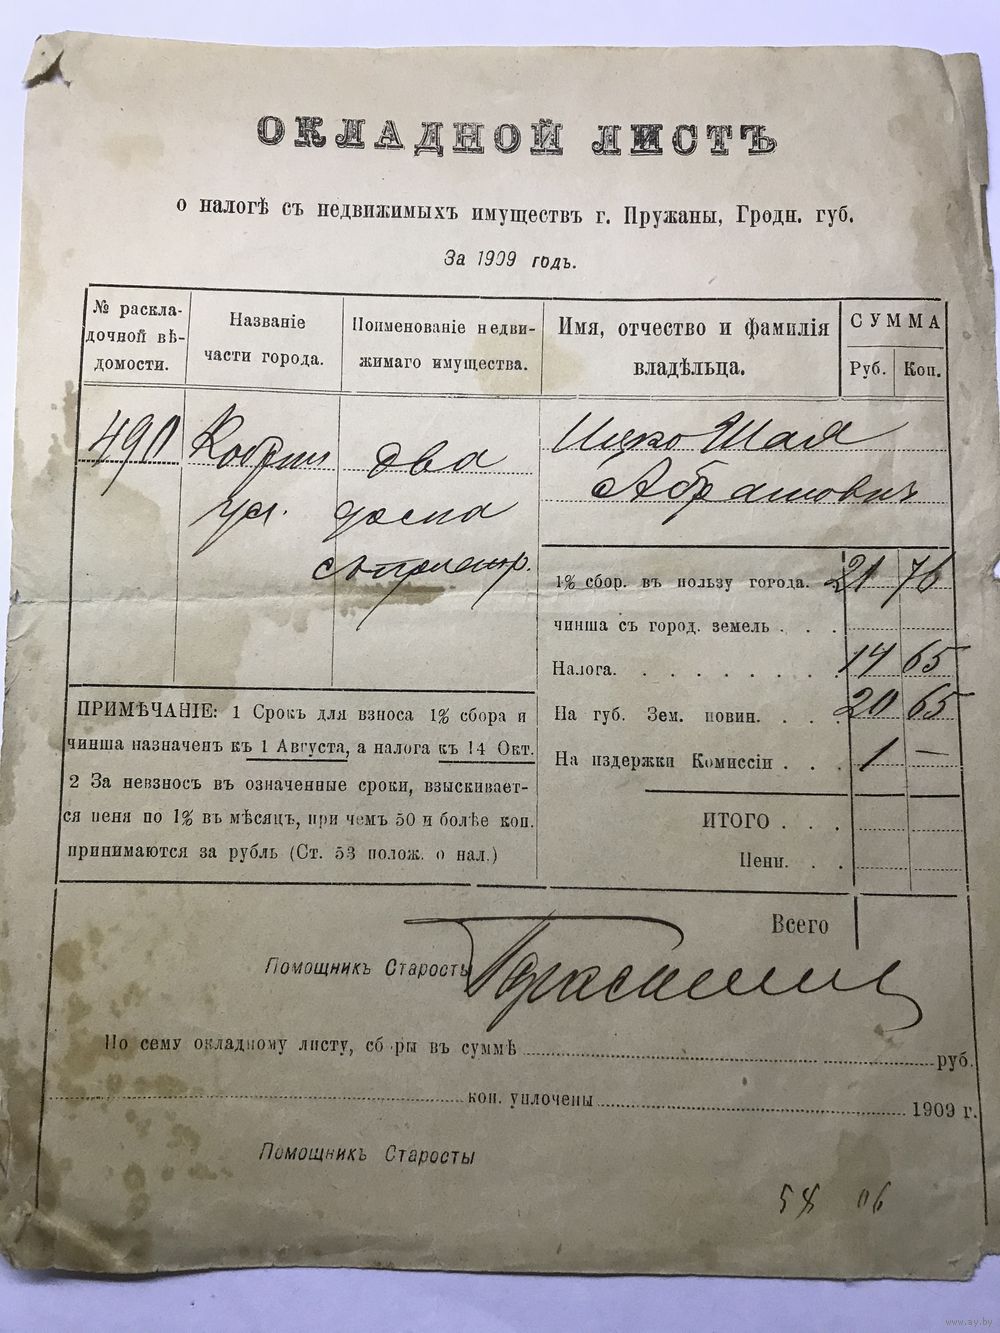 ОКЛАДНОЙ ЛИСТЪ
о налогѣ съ недвижимыхъ имуществъ г. Пружаны, Гродн. губ.
За 1909 годъ.
№ раскла-
дочной вѣ-
домости.
Названіе
части города.
Поименованіе недви-
жимаго имущества.
Имя, отчество и фамилія
владѣльца.
СУММА
Руб. Коп.
490
Кобрин
ул.
два
дома
Ицко Шая
Абрамович
1% сбор. въ пользу города. 21 76
чинша съ город. земель . . .
Налога. . . . . . . . . 14 65
На губ. Зем. повин. . . . 20 65
На издержки Комиссіи . . . 1 —
ИТОГО . . .
Пени. . .
Всего
ПРИМѢЧАНІЕ: 1 Срокъ для взноса 1% сбора и
чинша назначенъ къ 1 Августа, а налога къ 14 Окт.
2 За невзносъ въ означенные сроки, взыскивает-
ся пеня по 1% въ мѣсяцъ, при чемъ 50 и болѣе коп.
принимаются за рубль (Ст. 53 полож. о нал.)
Помощникъ Старосты
По сему окладному листу, сборы въ суммѣ руб.
коп. уплочены 1909 г.
Помощникъ Старосты
58 06
www.ay.by